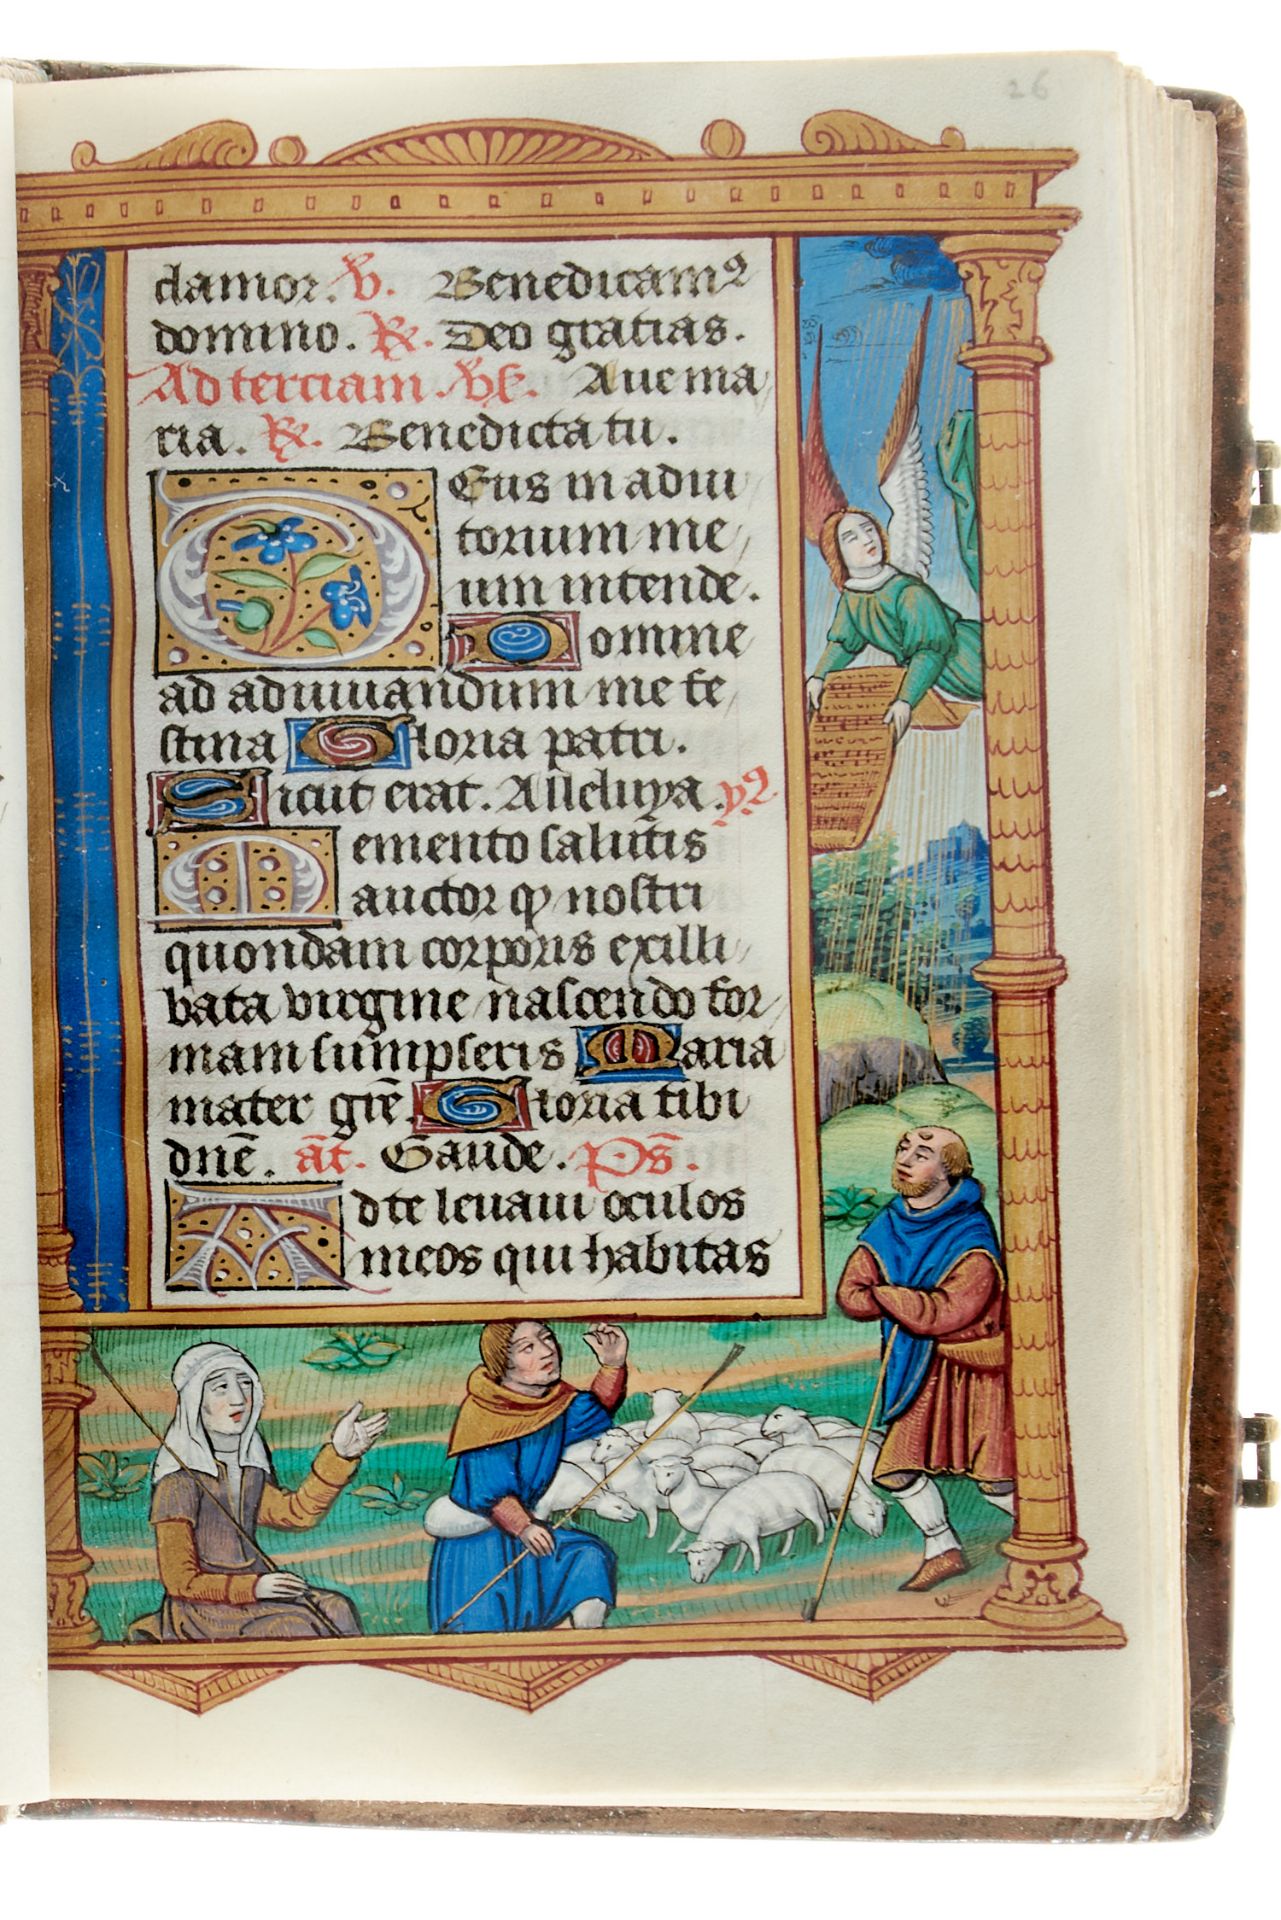 26
clamor. V. Benedicamꝰ
domino. ℟. Deo gratias.
Ad terciam. Vs. Aue ma
ria. ℟. Benedicta tu.
DEus in adiu
torium me
um intende.
Domine
ad adiuuandum me fe
stina Gloria patri.
Sicut erat. Alleluya. yꝰ.
Memento salutis
auctor ꝙ nostri
quondam corporis exilli
bata virgine nascendo for
mam sumpseris Maria
mater grē. Gloria tibi
dnē. āt. Gaude. Ps̄.
Ad te leuaui oculos
meos qui habitas